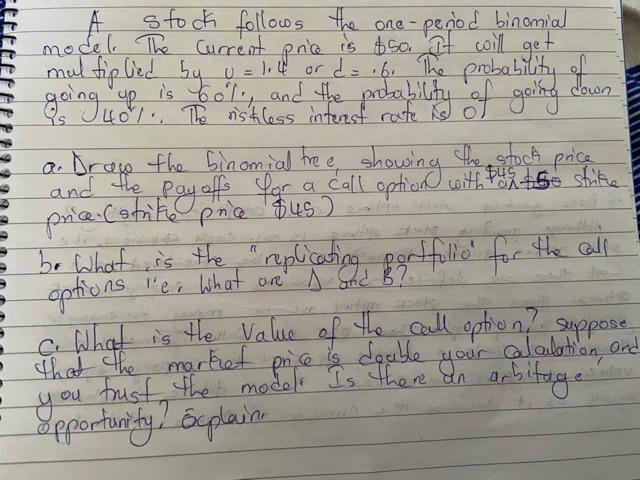 A stock follows the one-period binomial
model. The current price is $50. It will get
multiplied by u = 1.4 or d = .6. The probability of
going up is 60%, and the probability of going down
is 40%. The riskless interest rate is 0.
a. Draw the binomial tree, showing the stock price
and the payoffs for a call option with $45 strike
price. (strike price $45)
b. What is the "replicating portfolio" for the call
options i.e. what are Δ and B?
c. What is the value of the call option? suppose
that the market price is double your calculation, and
you trust the model. Is there an arbitage
opportunity? Explain.